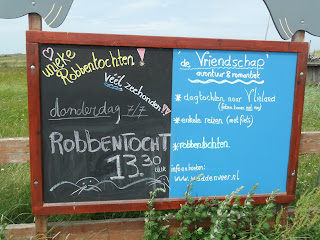 unieke
Robbentochten!
véél zeehonden!
donderdag 7/7
ROBBENTOCHT
13.30
uur
de Vriendschap
avontuur & romantiek
* dagtochten naar Vlieland
* enkele reizen (met fiets)
* robbentochten
info en boeken: